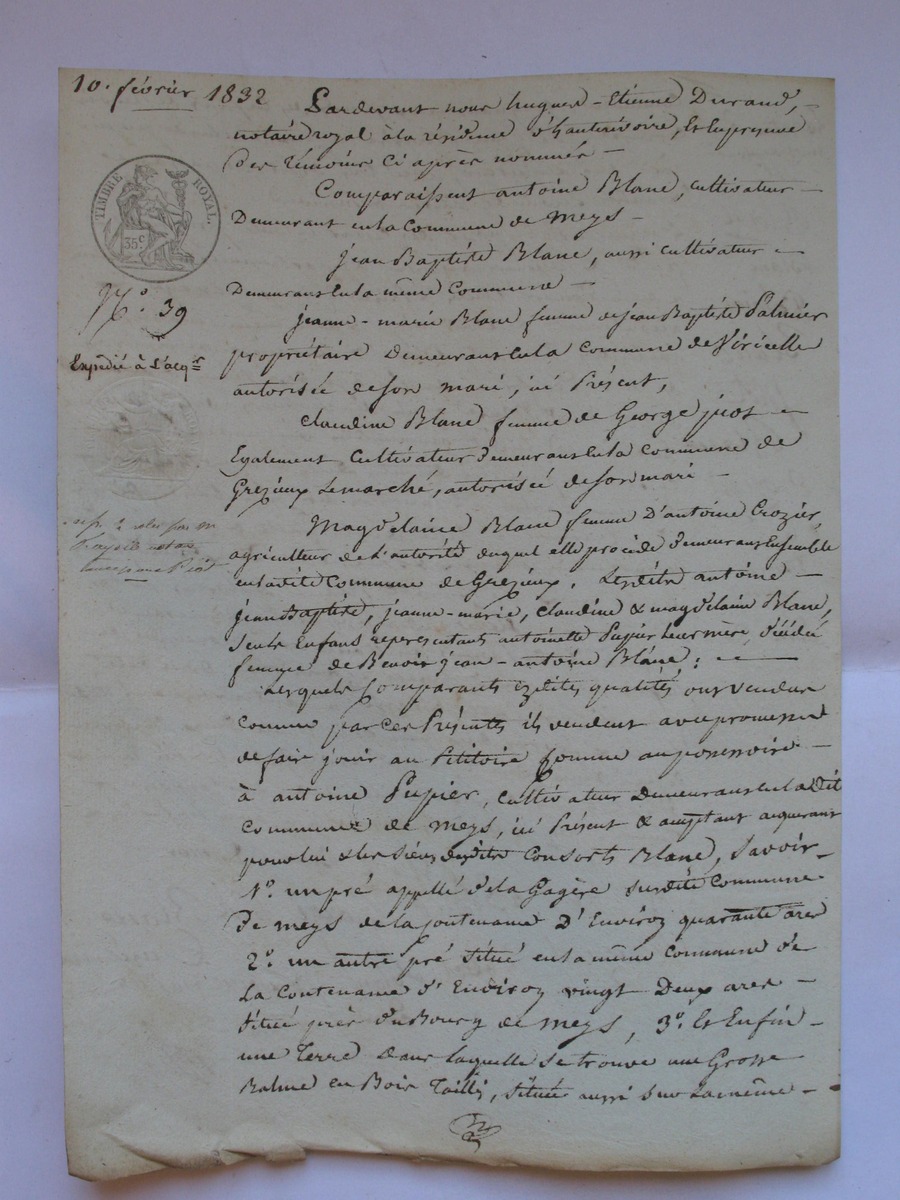 10. février 1832
Pardevant nous hugues-Etienne Durand,
notaire royal à la résidence d'hauterivoire, Et En présence
des témoins Ci après nommés
Comparaissent antoine Blanc, Cultivateur
Demeurant en la Commune de Meys
jean Baptiste Blanc, aussi Cultivateur
Demeurant en la même Commune
jeanne-marie Blanc femme de jean Baptiste Palmier
propriétaire Demeurant en la Commune de Viricelle
autorisée de son mari, ici Présent,
Claudine Blanc femme de George
Egalement Cultivateur demeurant en la Commune de
Grezieux Le marché, autorisée de son mari
Magdelaine Blanc femme D'antoine Crozier,
agriculteur de L'autorité duquel elle procède demeurant Ensemble
en ladite Commune de Grezieux, Lesdits antoine
jean Baptiste, jeanne-marie, Claudine & magdelaine Blanc,
Seuls Enfans représentants antoinette Pupier Leur mère, décédée
femme de Benoit jean-antoine Blanc;
Lesquels Comparants ont vendu
Comme par Ces Présentes ils vendent avec promesse
de faire jouir au Pétitoire Comme au possessoire
à antoine Pupier, Cultivateur Demeurant en ladite
Commune de Meys, ici Présent & acceptant acquerant
pour lui & les siens desdits Consorts Blanc, Savoir
1°. un pré appellé de la Gagère Surdite Commune
De Meys de la Contenance D'Environ quarante ares
2°. un autre pré Situé en la même Commune de
La Contenance d'Environ vingt Deux ares
Situé près du Bourg de Meys, 3°. Et Enfin
une Terre dans laquelle Se trouve une Grosse
Balme en Bois Taillis, Située aussi Sur La même
TIMBRE ROYAL
35 c.
N° 39
Expédié à L'acq.r